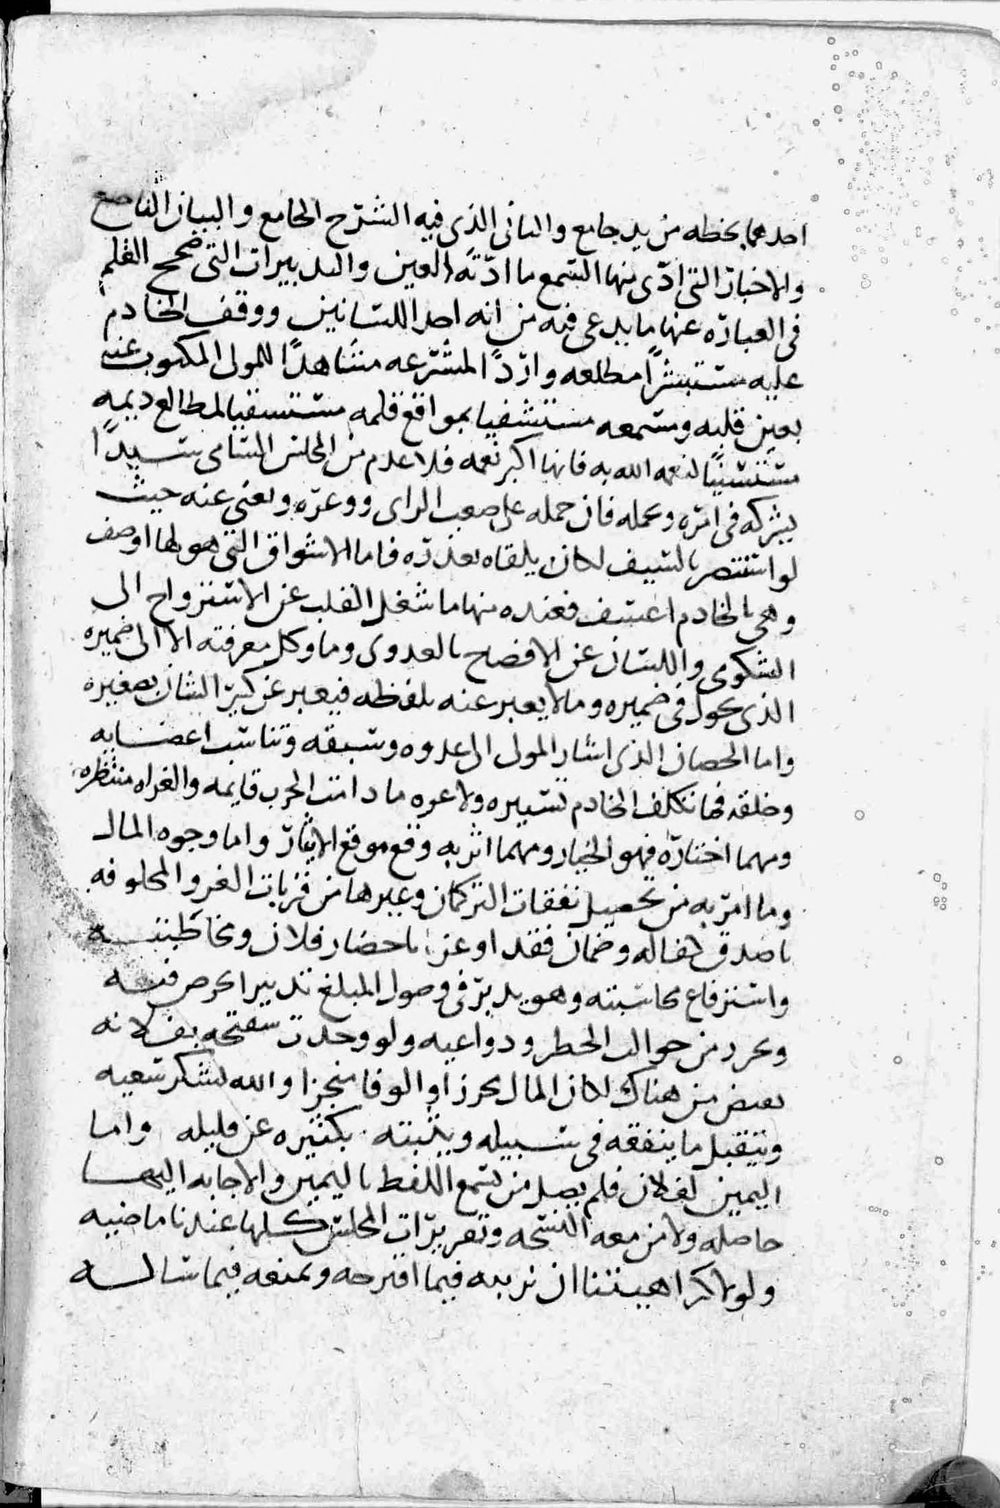 احدهما بخطه من يد جامع والثانى الذى فيه الشرح الجامع والبيان الناصع
والاخبار التى ادّى منها السمع ما ادّته العين والتدبيرات التى صحح القلم
فى العبارة عنها ما يدعى فيه من انه احد اللسانين ووقف الخادم
عليه مستبشرا بمطلعه واردًا لمشرعه مشاهدًا للمولى المكتوب عنه
بعين قلبه وسمعه مستشفيا بمواقع قلمه مستسقيا لمطالع ديمه
لنعمه الله به فانها اكبر نعمه فلا عدم من المجلس السامى سيدًا
يشركه فى امره وعمله فان حمله على صعب الراى ووعره ولعنى عنه حيث
لو استنصر بالسيف لكان يلقاه بعذره فاما الاشواق التى هو لها اوصف
وهى بالخادم اعسف فعنده منها ما شغل القلب عن الاستنزواح الى
الشكوى واللسان عن الافضح بالعدوى وما وكل معرفته الا الى ضميره
الذى يجول فى ضميره وما لا يعبر عنه بلفظه فيعبر عن كبير الشان بصغيره
واما الحصان الذى اشار المولى الى عدوه وسبقه وتناسب اعضايه
وخلقه فما تكلف الخادم تسييره ولا عره ما دامت الحرب قايمه والغراه منتظره
ومهما اختاره فهو الخيار ومهما اثر به وقع موقع الايثار واما وجوه المال
وما امر به من تحصيل نفقات التركمان وغيرها من قربات الغز والمحلوفه
باصدق كفاله وضمان فقد اوعز باحضار فلان ومخاطبته
واسترفاع محاسبته وهو يدبر فى وصول المبلغ تدبيرا يحرص فيه
ويحرد من جوالب الخطر ودواعيه ولو وجدت سفتجه بفلانه
بعض من هناك لكان المال محرزا والوفا منجزا والله يشكر سعيه
ويتقبل ما ينفقه فى سبيله ويثبته بكثيره عن قليله واما
اليمين لفلان فلم يصل من يسمع اللفظ باليمين والاجابه اليها
حاصله ولا من معه النسخه وتقريرات المجلس كلها عندنا ماضيه
ولولا كراهيتنا ان نربه فيما اقترحه ونمنعه فيما ساله